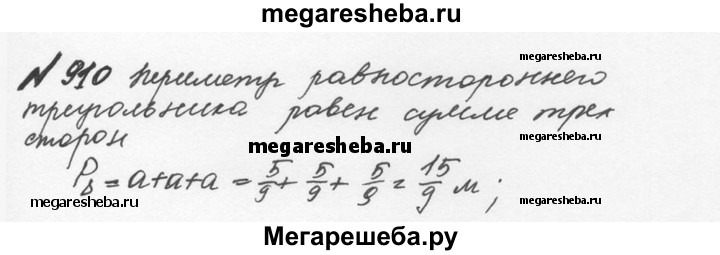 megaresheba.ru
megaresheba.ru
№ 910 периметр равностороннего
треугольника равен сумме трех
megaresheba.ru
сторон
megaresheba.ru
P_Δ = a+a+a = 5/9 + 5/9 + 5/9 = 15/9 м;
megaresheba.ru
megaresheba.ru
Мегарешеба.ру